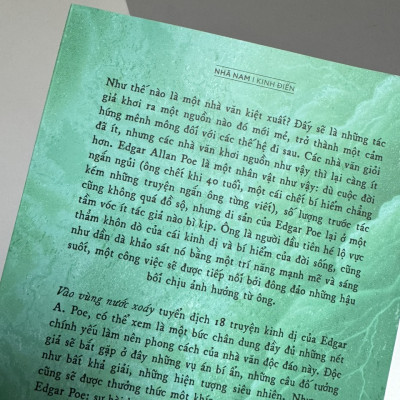 NHÃ NAM | KINH ĐIỂN
Như thế nào là một nhà văn kiệt xuất? Đấy sẽ là những tác
giả khơi ra một nguồn nào đó mới mẻ, trở thành một cảm
hứng mênh mông đối với các thế hệ đi sau. Các nhà văn giỏi
đã ít, nhưng các nhà văn khơi nguồn như vậy thì lại càng ít
hơn. Edgar Allan Poe là một nhân vật như vậy: dù cuộc đời
ngắn ngủi (ông chết khi 40 tuổi, một cái chết bí hiểm chẳng
kém những truyện ngắn ông từng viết), số lượng trước tác
cũng không quá đồ sộ, nhưng di sản của Edgar Poe lại ở một
tầm vóc ít tác giả nào bì kịp. Ông là người đầu tiên hé lộ vực
thẳm khôn dò của cái kinh dị và bí hiểm của đời sống, cũng
như dấn dà khảo sát nó bằng một trí năng mạnh mẽ và sáng
suốt, một công việc sẽ được tiếp nối bởi đông đảo những hậu
bối chịu ảnh hưởng từ ông.
Vào vùng nước xoáy tuyển dịch 18 truyện kinh dị của Edgar
A. Poe, có thể xem là một bức chân dung đầy đủ những nét
chính yếu làm nên phong cách của nhà văn độc đáo này. Độc
giả sẽ bắt gặp ở đây những vụ án bí ẩn, những câu đố tưởng
như bất khả giải, những hiện tượng siêu nhiên. Như
cũng sẽ được thưởng thức một khía
Edgar Poe: sự hài